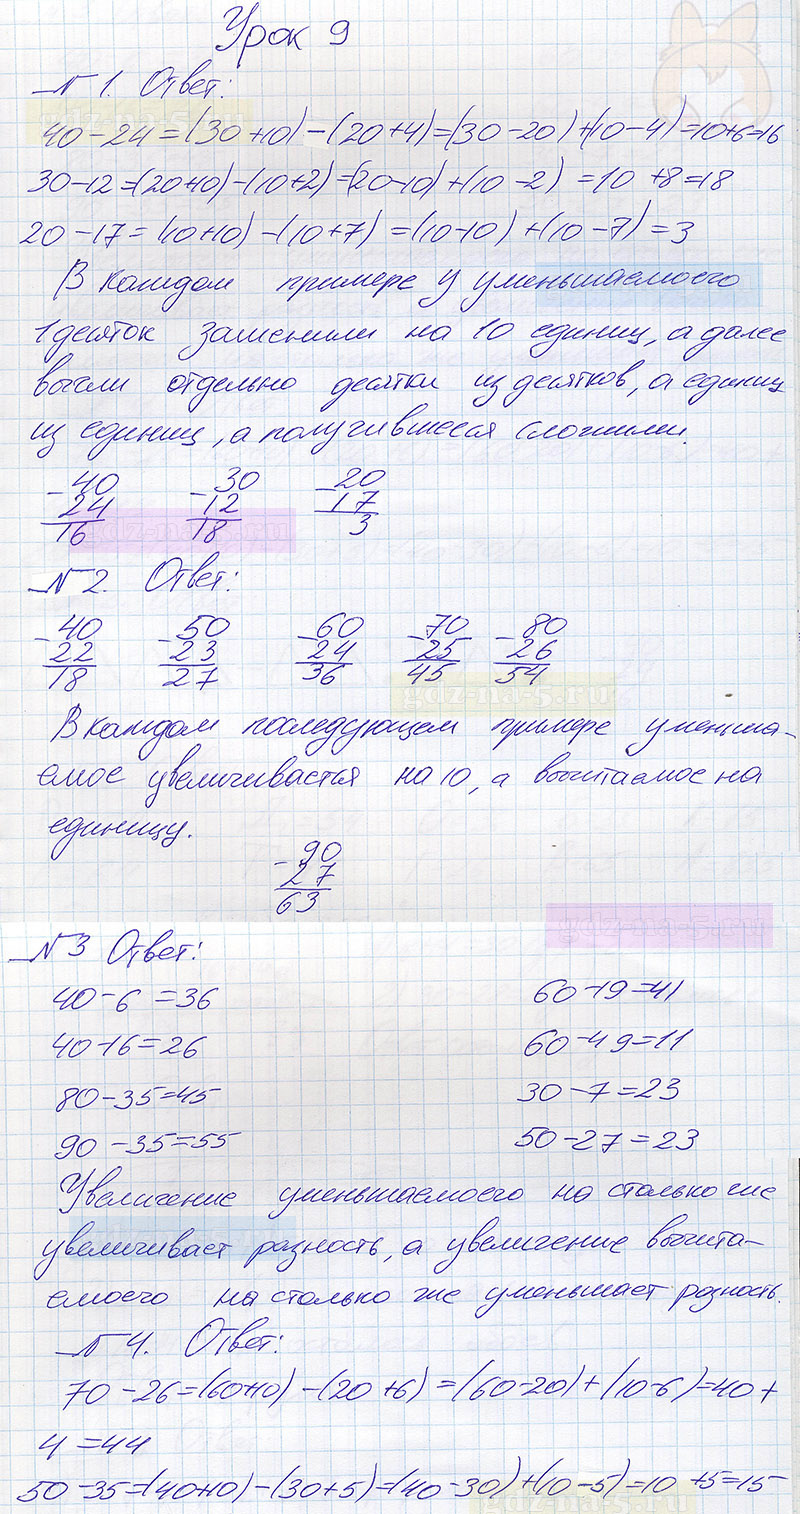 Урок 9
№ 1. Ответ:
gdz-na-5.ru
40-24=(30+10)-(20+4)=(30-20)+(10-4)=10+6=16
30-12=(20+10)-(10+2)=(20-10)+(10-2)=10+8=18
20-17=(10+10)-(10+7)=(10-10)+(10-7)=3
В каждом примере у уменьшаемоего
1 десяток заменили на 10 единиц, а далее
вычли отдельно десятки из десятков, а единиц
из единиц, а получившееся сложили.
-40 -30 -20
24 12 17
16 18 3
gdz-na-5.ru
№ 2. Ответ:
-40 -50 -60 -70 -80
22 23 24 25 26
18 27 36 45 54
gdz-na-5.ru
В каждом последующем примере уменьша-
емое увеличивается на 10, а вычитаемое на
единицу.
-90
27
63
gdz-na-5.ru
№3 Ответ:
40-6=36 60-19=41
40-16=26 60-49=11
80-35=45 30-7=23
90-35=55 50-27=23
Увеличение уменьшаемоего на столько же
увеличивает разность, а увеличение вычита-
емоего на столько же уменьшает разность.
№ 4. Ответ:
70-26=(60+10)-(20+6)=(60-20)+(10-6)=40+
4=44
50-35=(40+10)-(30+5)=(40-30)+(10-5)=10+5=15
gdz-na-5.ru